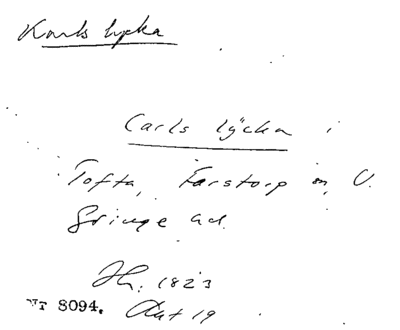 Karls lycka
Carls lycka i
Tofta, Farstorp sn, V.
Göinge hd.
Jb. 1823
NT 8094. Akt 19